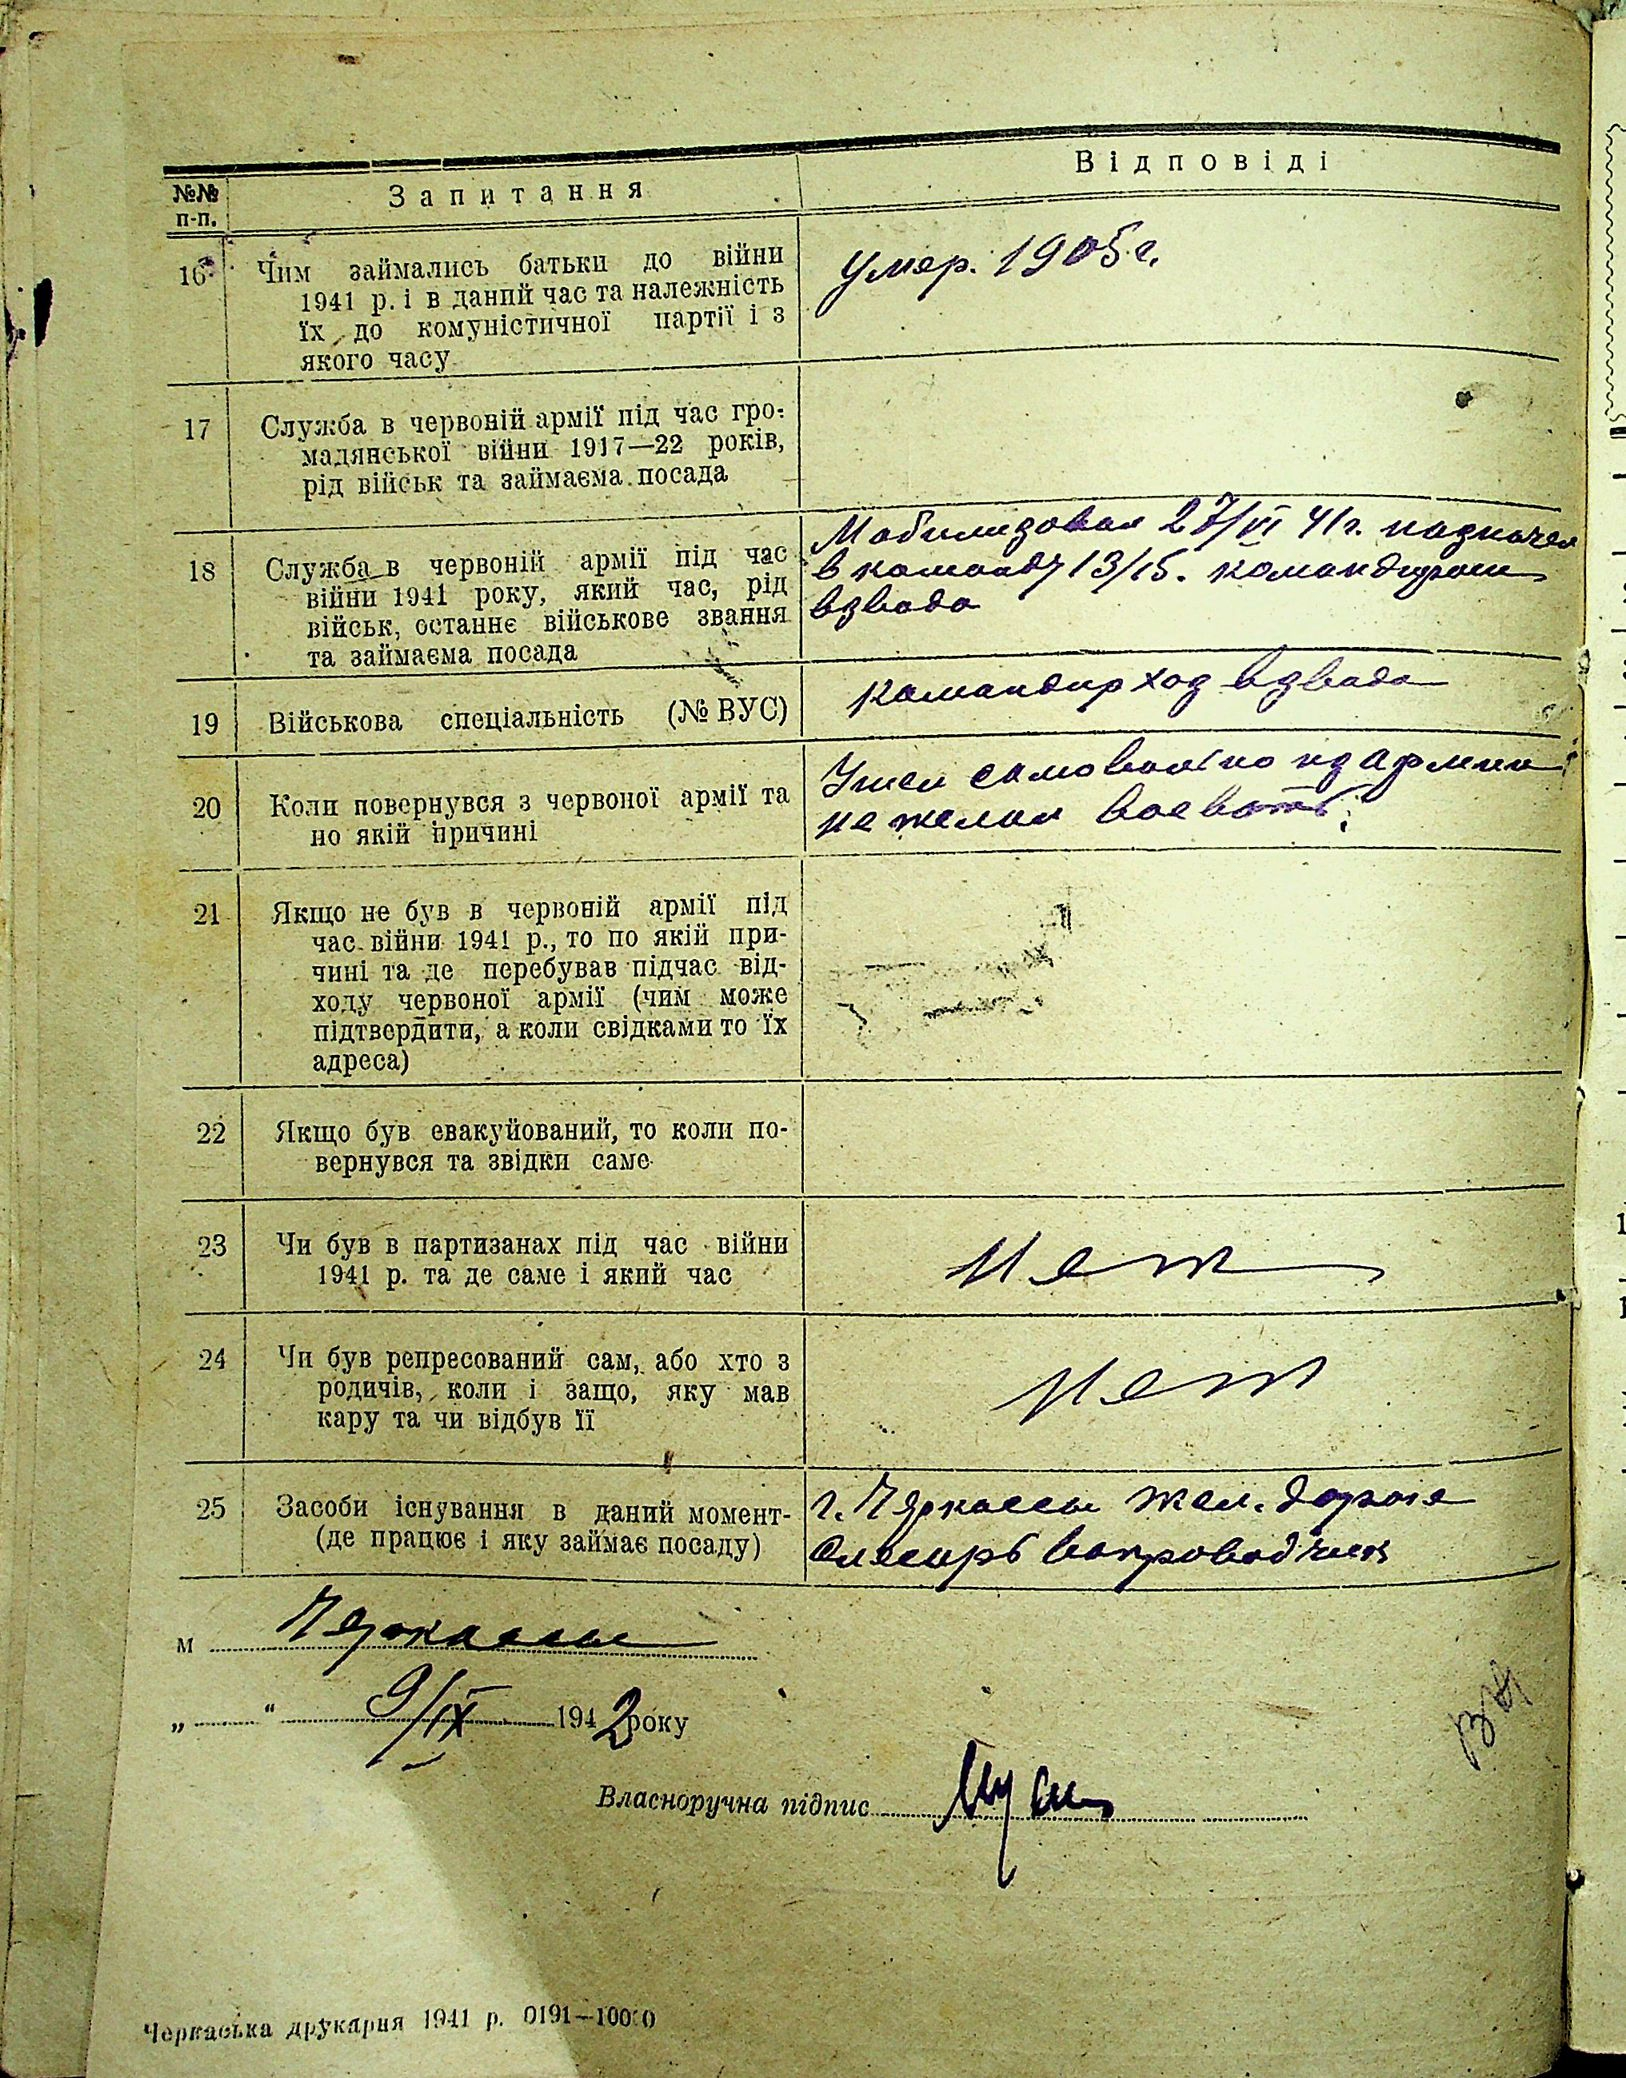 №№ п-п.
Запитання
Відповіді
16
Чим займались батьки до війни
1941 р. і в даний час та належність
їх до комуністичної партії і з
якого часу
умер. 1905 г.
17
Служба в червоній армії під час гро-
мадянської війни 1917—22 років,
рід військ та займаєма посада
18
Служба в червоній армії під час
війни 1941 року, який час, рід
військ, останнє військове звання
та займаєма посада
Мобилизован 27/VI 41 г. назначен
в команду 13/15. командиром
взвода
19
Військова спеціальність (№ ВУС)
командир хоз взвода
20
Коли повернувся з червоної армії та
но якій причині
Ушел самовольно из армии
не желая воевать.
21
Якщо не був в червоній армії під
час війни 1941 р., то по якій при-
чині та де перебував підчас від-
ходу червоної армії (чим може
підтвердити, а коли свідками то їх
адреса)
22
Якщо був евакуйований, то коли по-
вернувся та звідки саме
23
Чи був в партизанах під час війни
1941 р. та де саме і який час
нет
24
Чи був репресований сам, або хто з
родичів, коли і защо, яку мав
кару та чи відбув її
нет
25
Засоби існування в даний момент-
(де працює і яку займає посаду)
г. Черкассы жел. дорога
Слесарь
м Черкассы
„ “ 9/IX 1942 року
Власноручна підпис
Черкаська друкарня 1941 р. 0191—10000